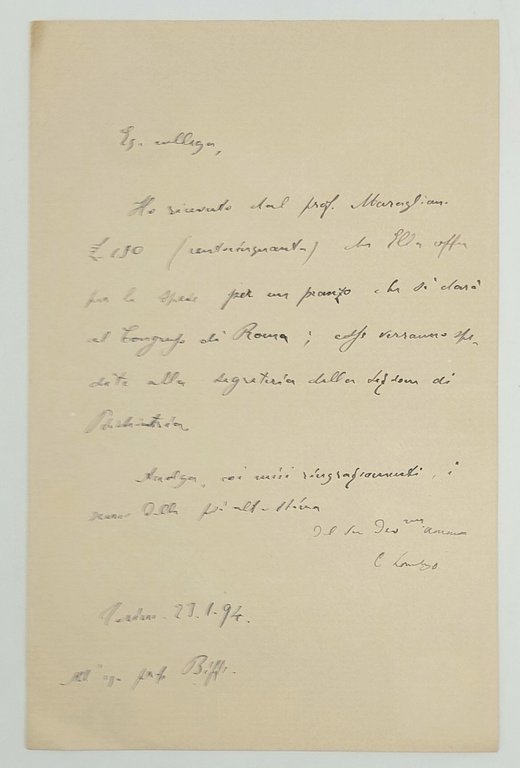 Eg. collega,
Ho ricevuto dal prof. Maragliano
£ 150 (centocinquanta) che Ella offre
per le spese per un pranzo che si darà
al Congresso di Roma; esse verranno spe-
dite alla segreteria della Sezione di
Psichiatria
Accolga, coi miei ringraziamenti, i
sensi della più alta stima
Del Suo Dev
C Lombroso
23.1.94.
All' eg. prof. Biffi.